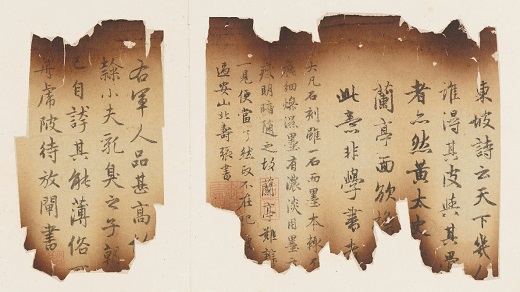 東坡詩云天下幾
誰得其皮與其骨
者亦然黃太史
蘭亭面欲
此意非學書者
大凡石刻雖一石而墨本輒不
細燥濕墨有濃淡用墨有
明暗隨之故蘭亭難辨
一見便當了然政不在肥
過安山北壽張書
右軍人品甚高
隸小夫乳臭之子朝
已自誇其能薄俗
虎陂待放閘書